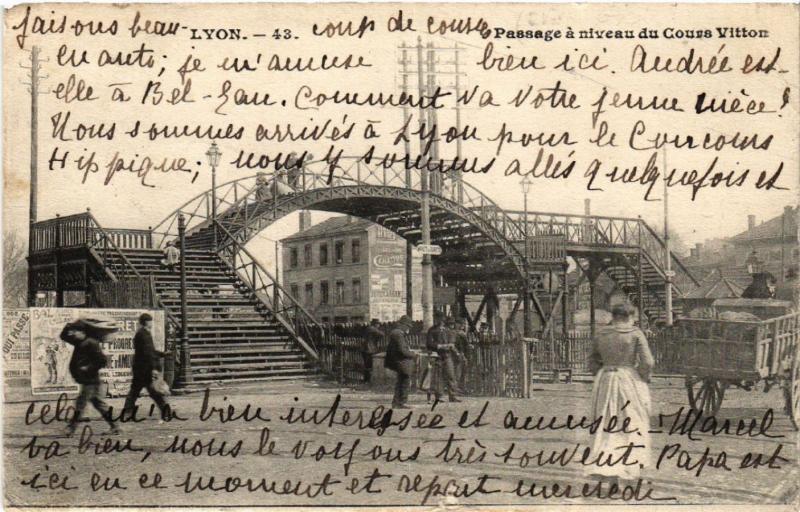 LYON. — 43.
Passage à niveau du Cours Vitton
faisons beau- coup de course
en auto; je m'amuse bien ici. Andrée est-
elle à Bel-Eau. Comment va votre jeune nièce?
Nous sommes arrivés à Lyon pour le Concours
Hippique; nous y sommes allés quelquefois et
BAL
cela m'a bien intéressée et amusée. — Marcel
va bien, nous le voyons très souvent. Papa est
ici en ce moment et repart mercredi